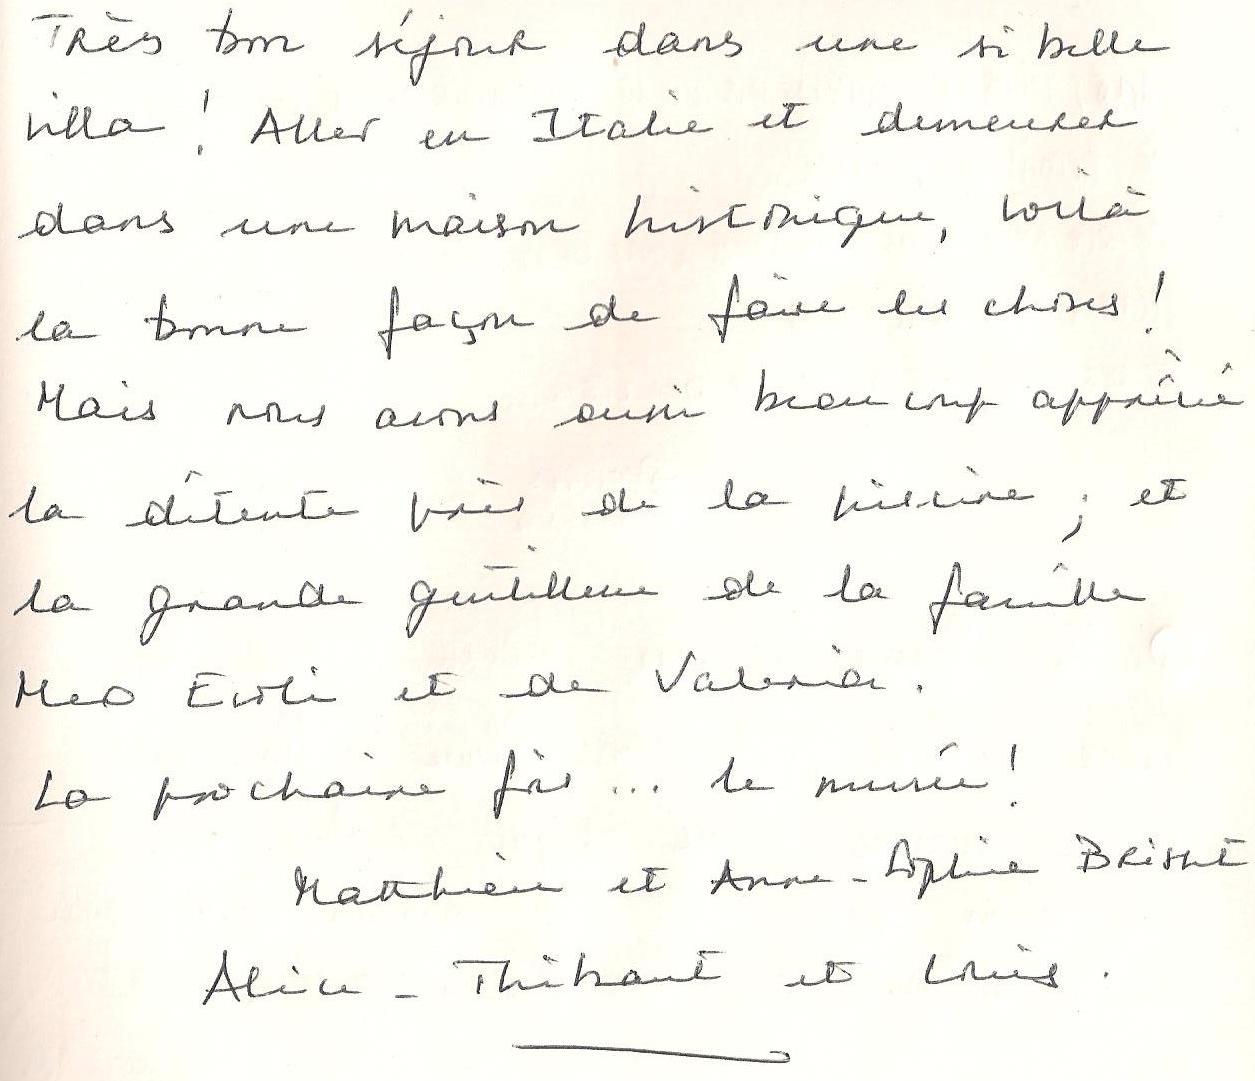 Très bon séjour dans une si belle
villa ! Aller en Italie et demeurer
dans une maison historique, voilà
la bonne façon de faire les choses !
Mais nous avons aussi beaucoup apprécié
la détente près de la piscine ; et
la grande gentillesse de la famille
Meo Evoli et de Valeria.
La prochaine fois ... le musée !
Matthieu et Anne-Sophie
Alice - Thibaut et Louis.